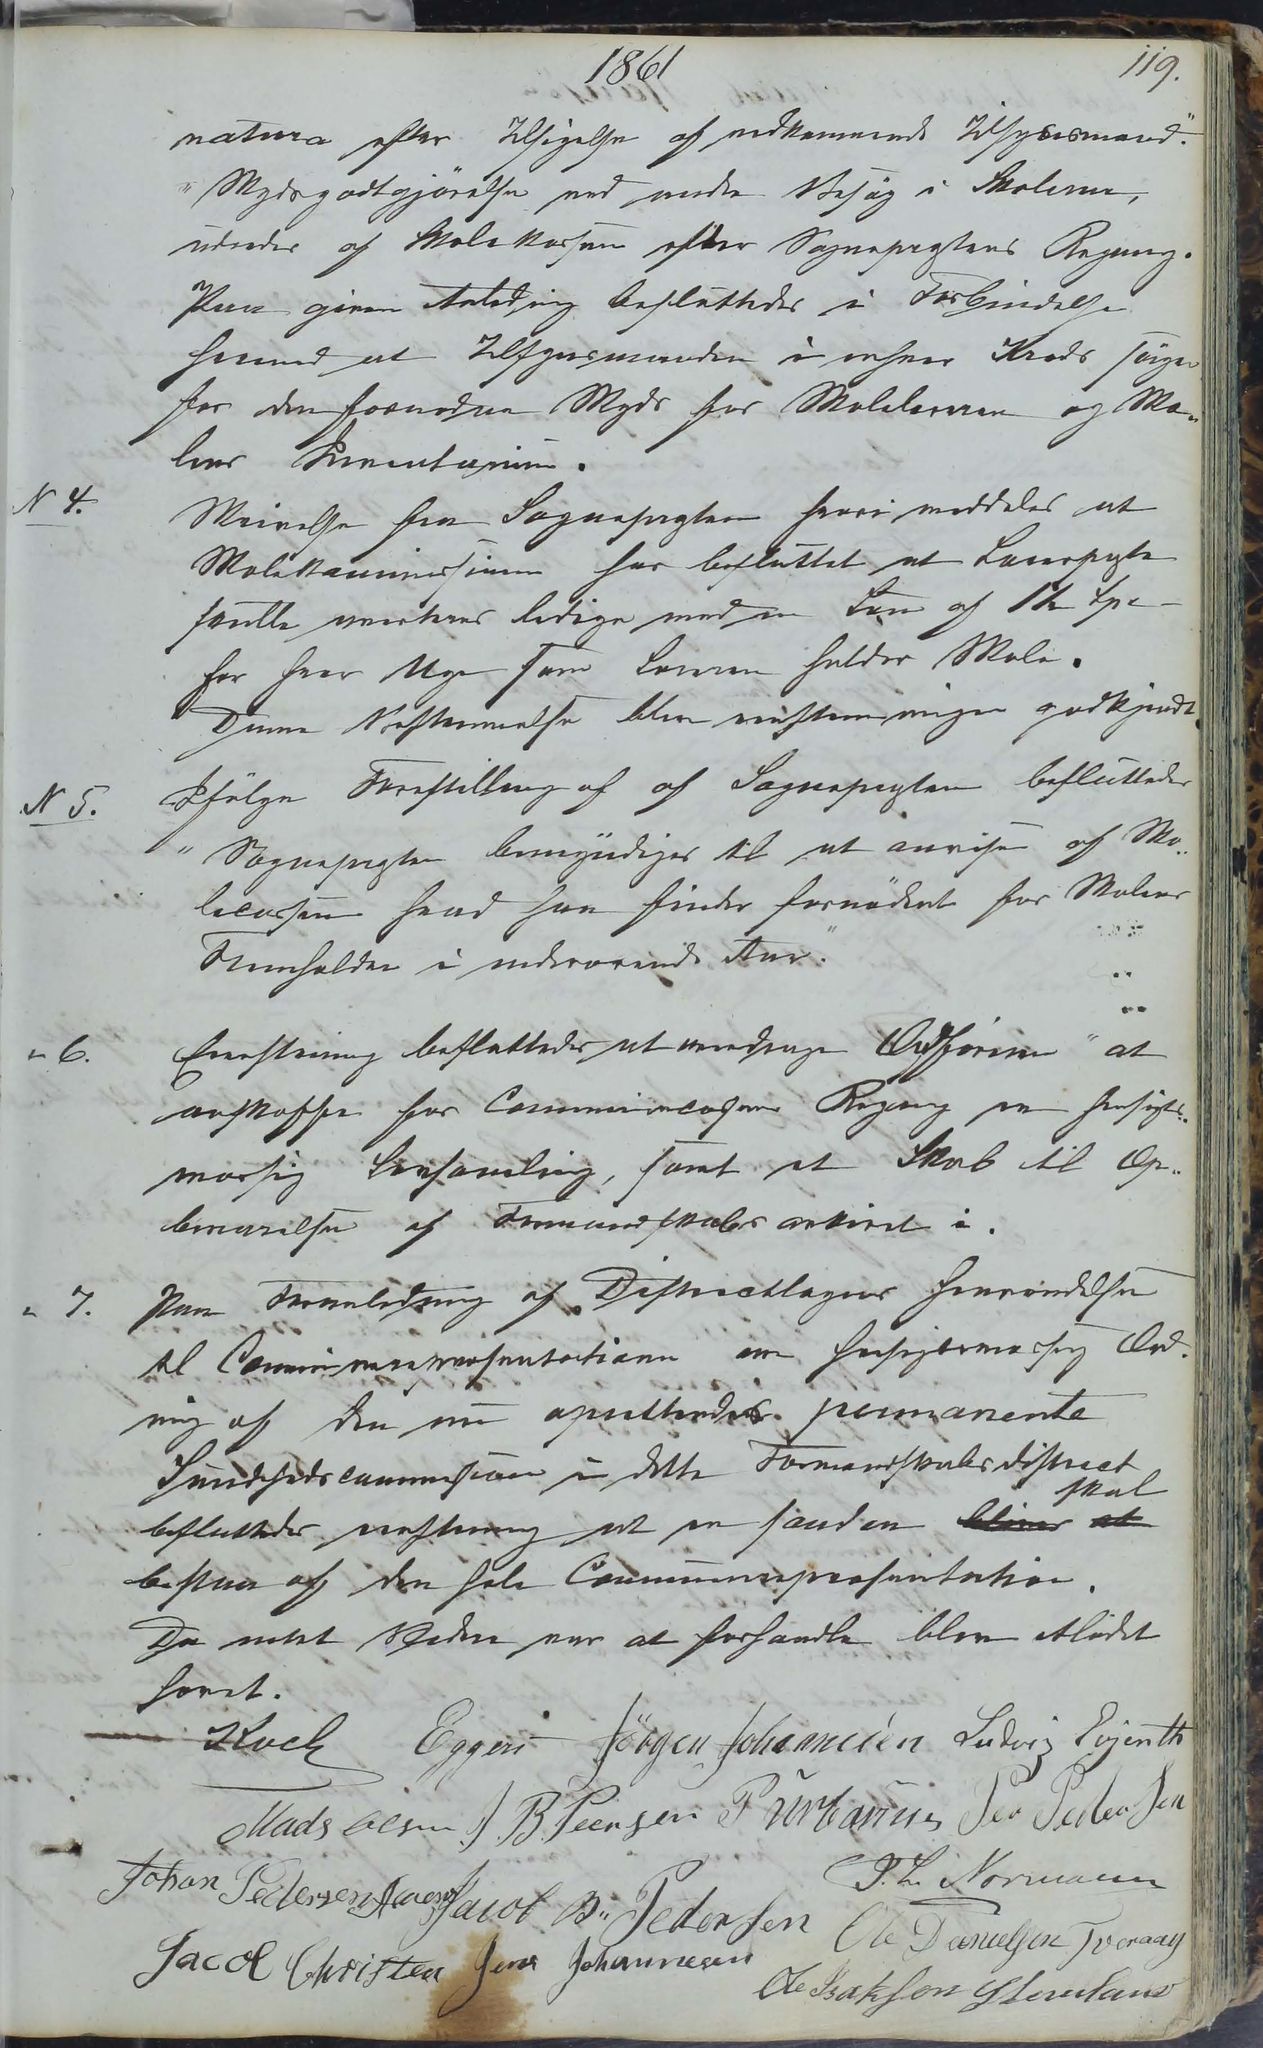 1861
119.
natura efter Tilsigelse af vedkommende Tilsynsmand."
" Skydsgodtgjörelse ved andre Besög i Skolerne,
udredes af Skolekassen efter Sognepræstens Regning.
Paa given Anledning besluttedes i Forbindelse
hermed at Tilsynsmanden i enhver Kreds sörger
for den fornödne Skyds for Skolelæreren og Sko-
lens Inventarium.
N 4.
Skrivelse fra Sognepræsten hvori meddeles at
Skolekommissionen har besluttet at Lærerposte
skulle averteres ledige med en Lön af 1½ Spd
for hver Uge som Læreren holder Skole.
Denne Bestemmelse blev eenstemmigen godkjendt.
N 5.
Ifölge Forestilling af af Sognepræsten besluttedes
" Sognepræsten bemyndiges til at anvise af Sko-
lecassen hvad han finder fornödent for Skolens
Fremholden i indeværende Aar."
" 6.
Eenstemmig besluttedes at anmodes Ordföreren " at
anskaffe for Communecassens Regning en hensigts-
mæssig Lovsamling, samt et Skab til Op-
bevarelse af Formandskabets arkivet i.
" 7.
Paa Foranledning af Districtlægens Henvendelse
til Communerepræsentationen om hensigtsmæssig Ord-
ning af den nu oprettende permanente
Sundhedscommission i dette Formandskabsdistrict
skal
besluttedes eenstemmig at en saadan bliver at
bestaa af den hele Communerepræsentation.
Da intet Videre var at forhandle blev Mödet
hævet.
Koch Eggen Jörgen Johannesen Ludvig Evjenth
Mads Olsen J. B. Peersen P Urbanus Per Pedersen
Johan Pedersen Jacob B. Pedersen P. L. Normann
Jacob Christen Jens Johannesen Ole Danielsen Tveraaen
Ole Isaksen